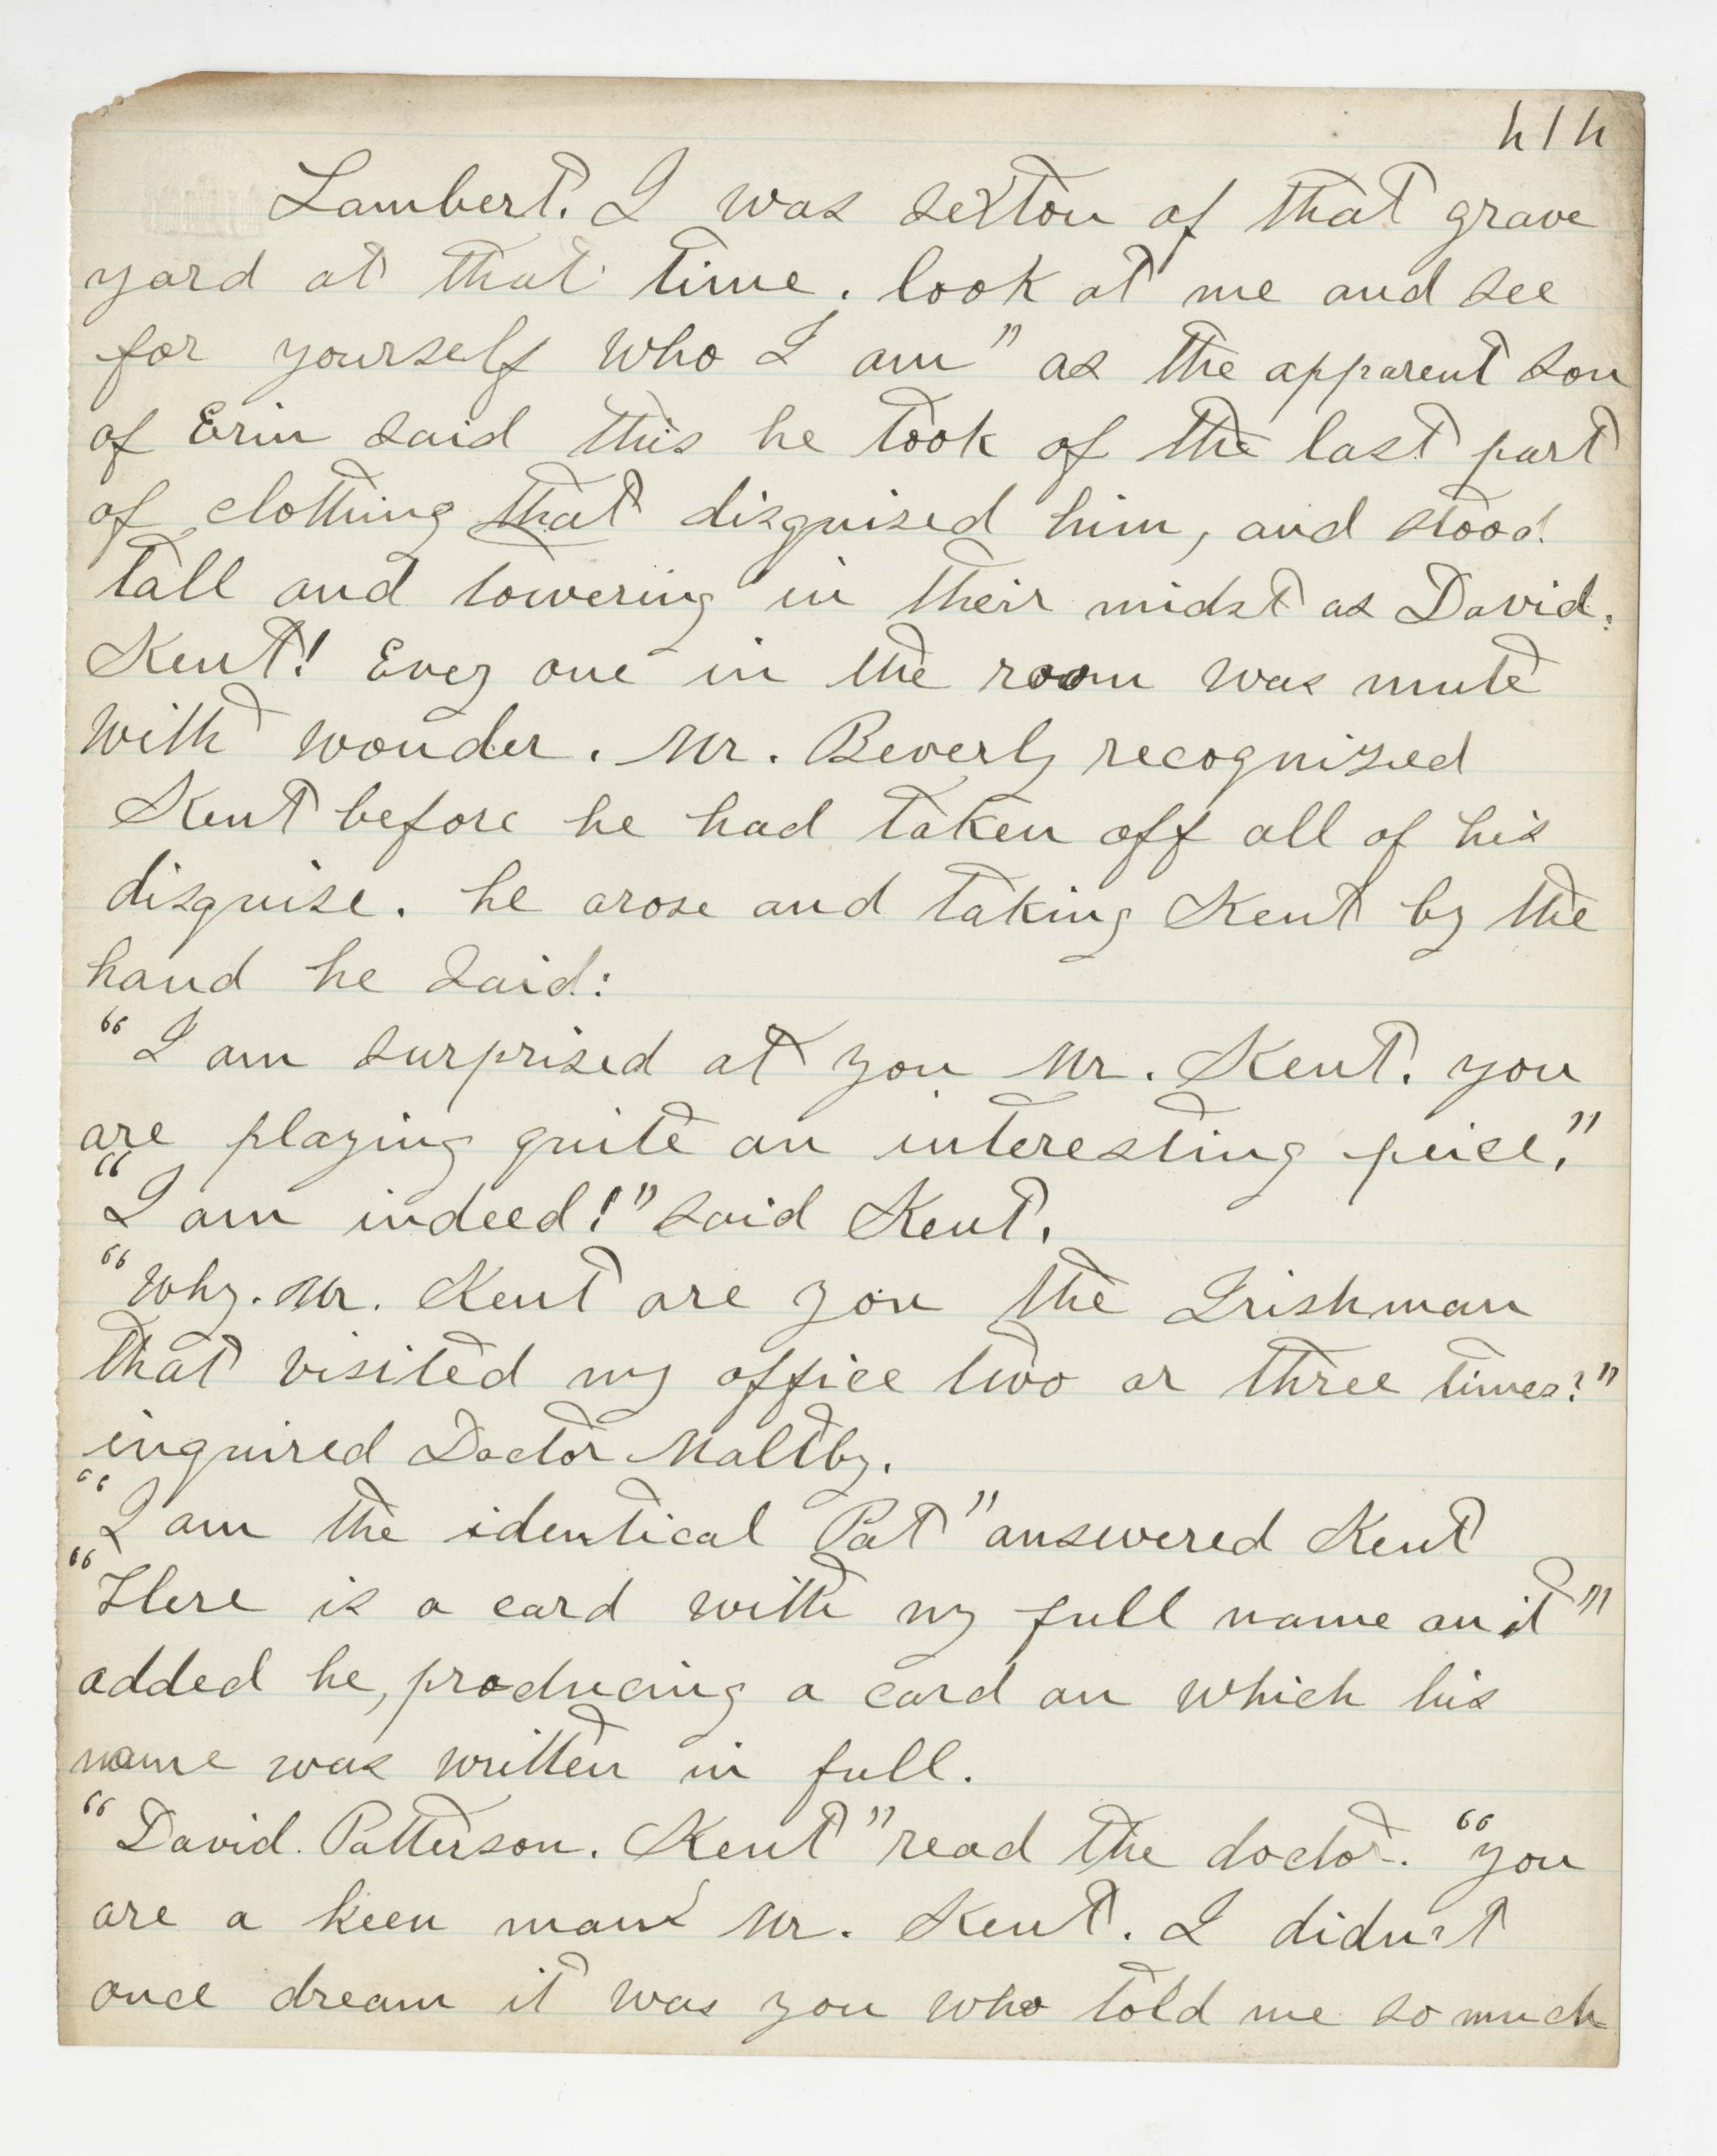 414
Lambert. I was sexton of that grave
yard at that time. look at me and see
for yourself who I am" as the apparent son
of Erin said this he took of the last part
of clothing that disguised him, and stood
tall and towering in their midst as David.
Kent! Evey one in the room was mute
with wonder. Mr. Beverly recognized
Kent before he had taken off all of his
disguise. he arose and taking Kent by the
hand he said:
"I am surprised at you Mr. Kent. you
are playing quite an interesting peice."
"I am indeed!" said Kent.
"Why. Mr. Kent are you the Irishman
that visited my office two or three times?"
inquired Doctor Maltby.
"I am the identical Pat" answered Kent
"Here is a card with my full name on it"
added he, producing a card on which his
name was written in full.
"David. Patterson. Kent" read the doctor. "you
are a keen man Mr. Kent. I didn't
once dream it was you who told me so much